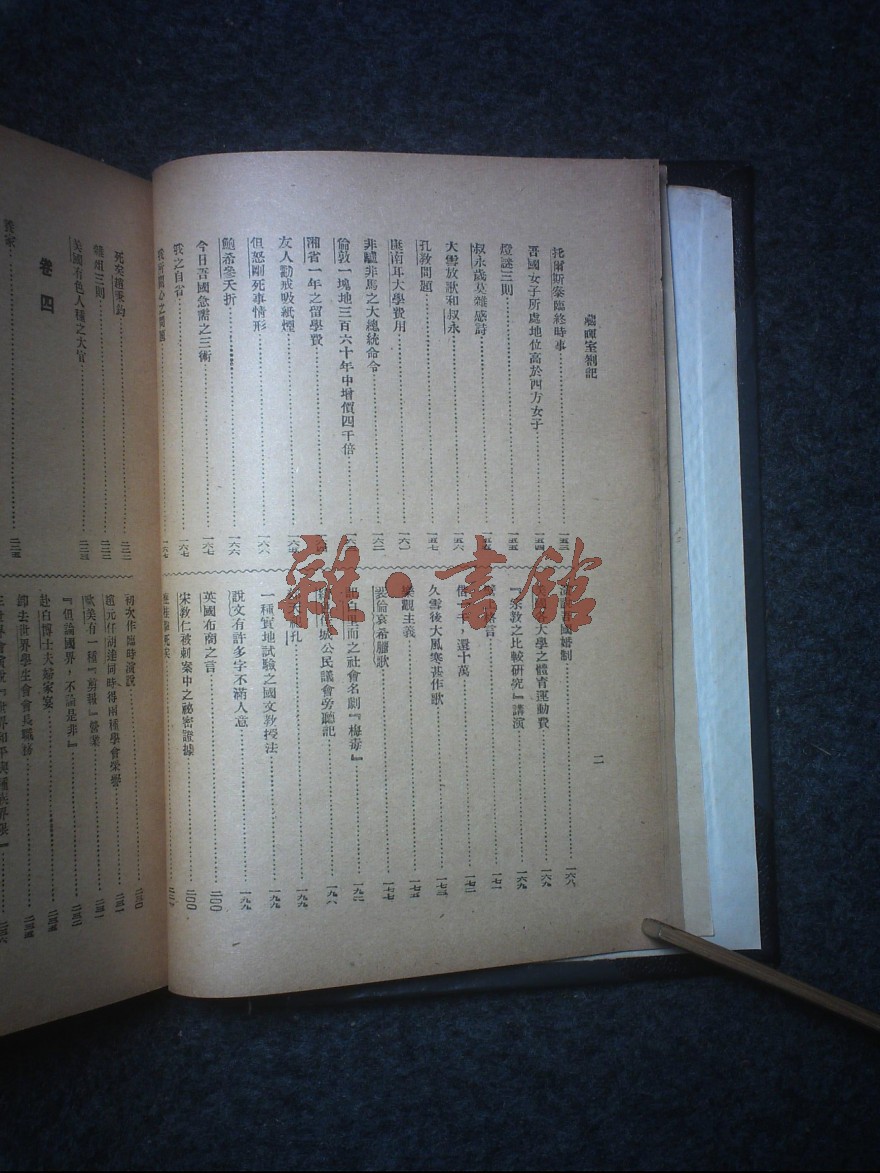 藏暉室劄記
二
托爾斯泰臨終時事……一五三
吾國女子所處地位高於西方女子……一五四
燈謎三則……一五五
叔永歲莫雜感詩……一五五
大雪放歌和叔永……一五六
孔教問題……一五七
康南耳大學費用……一六〇
非驢非馬之大總統命令……一六二
倫敦一塊地三百六十年中增價四千倍
湘省一年之留學費
友人勸戒吸紙煙
但怒剛死事情形……一六六
鮑希參夭折……一六六
今日吾國急需之三術……一六七
我之自省……一六七
我所關心之問題……一六七
吾國婚制……一六八
大學之體育運動費……一六九
『宗教之比較研究』講演……一六九
格言……一七一
還十萬……一七二
久雪後大風寒甚作歌……一七三
樂觀主義……一七五
裴倫哀希臘歌……一七七
之社會名劇『梅毒』……一九二
城公民議會旁聽記……一九六
孔……一九九
一種實地試驗之國文教授法……一九九
說文有許多字不滿人意……一九九
英國布商之言……二〇〇
宋教仁被刺案中之祕密證據……二〇〇
死矣趙秉鈞……二二二
雜俎三則……二二三
美國有色人種之大官……二二三
卷四
養家……二二五
初次作臨時演說……二三〇
趙元任胡達同時得兩種學會榮譽……二三一
歐美有一種『剪報』營業……二三一
『但論國界，不論是非』……二三二
赴白博士夫婦家宴……二三五
卸去世界學生會會長職務……二三五